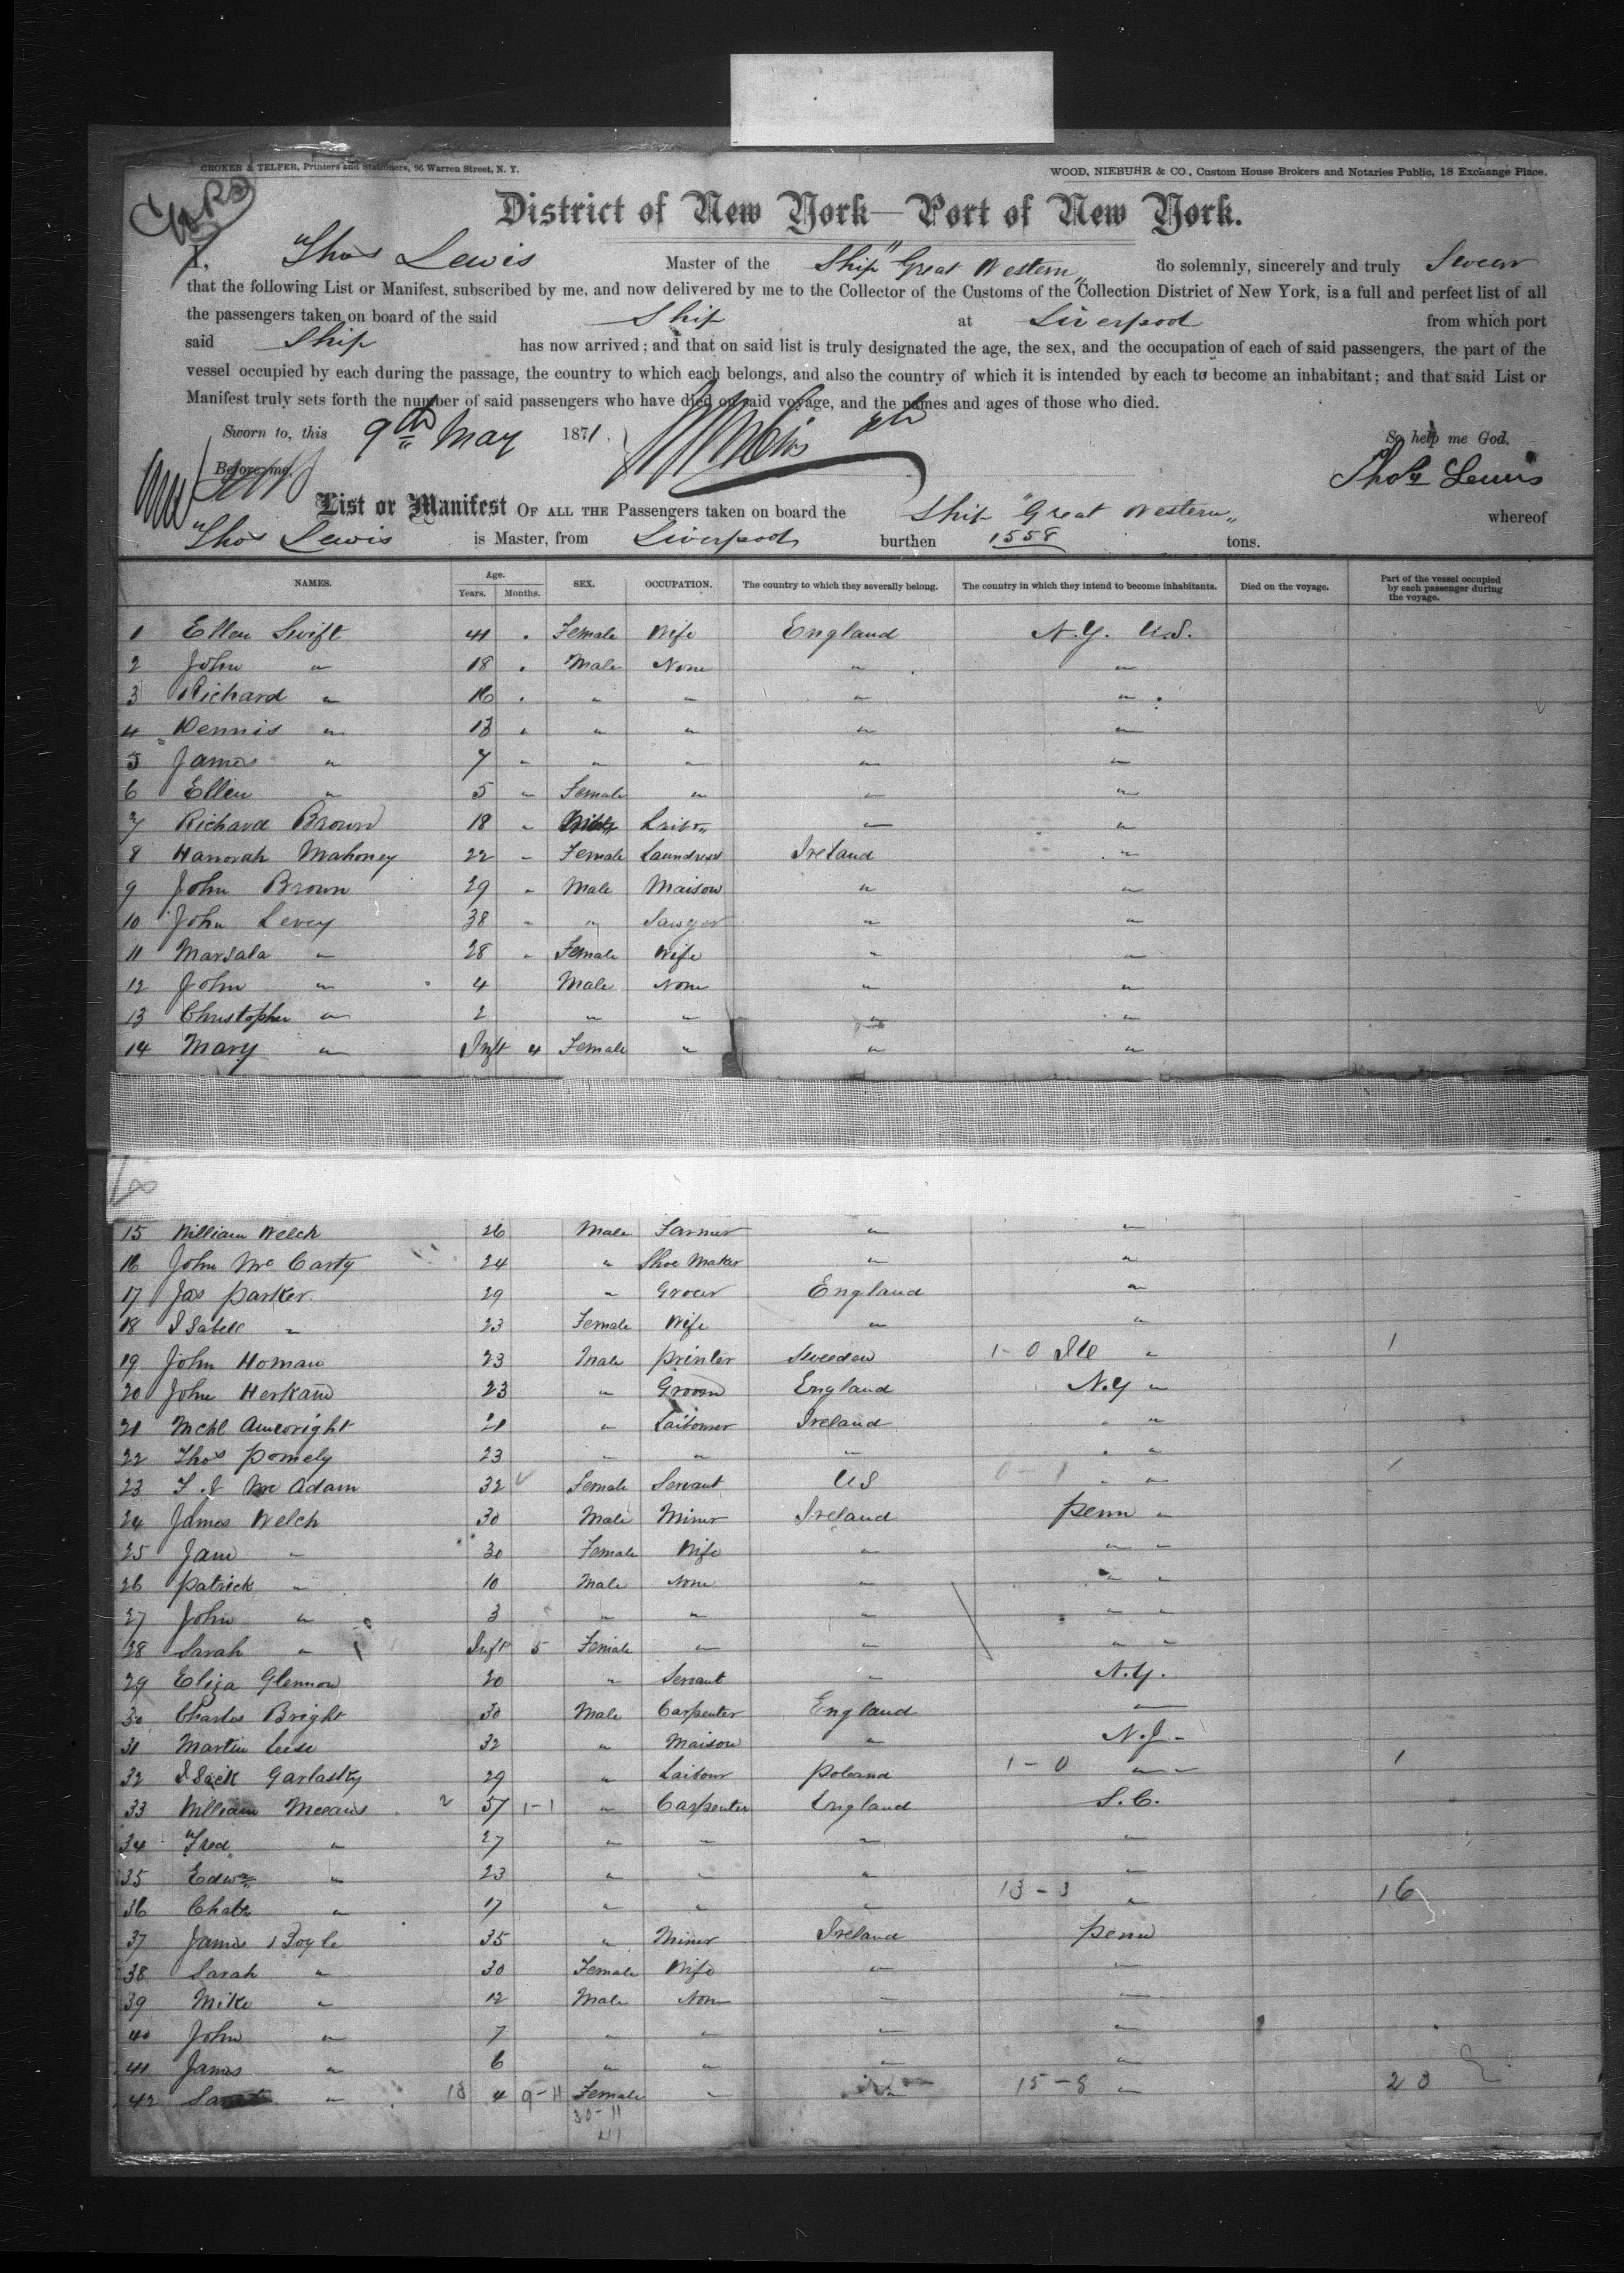 CROKER & TELFER, Printers and Stationers, 96 Warren Street, N. Y. WOOD, NIEBUHR & CO., Custom House Brokers and Notaries Public, 18 Exchange Place.
District of New York—Port of New York.
I, Thos Lewis Master of the Ship "Great Western" do solemnly, sincerely and truly Swear
that the following List or Manifest, subscribed by me, and now delivered by me to the Collector of the Customs of the Collection District of New York, is a full and perfect list of all
the passengers taken on board of the said Ship at Liverpool from which port
said Ship has now arrived; and that on said list is truly designated the age, the sex, and the occupation of each of said passengers, the part of the
vessel occupied by each during the passage, the country to which each belongs, and also the country of which it is intended by each to become an inhabitant; and that said List or
Manifest truly sets forth the number of said passengers who have died on said voyage, and the names and ages of those who died.
Sworn to, this 9th May 1871. So help me God.
Before me, Thos Lewis
List or Manifest OF ALL THE Passengers taken on board the Ship "Great Western" whereof
Thos Lewis is Master, from Liverpool burthen 1558 tons.
NAMES. Age. Years. Months. SEX. OCCUPATION. The country to which they severally belong. The country in which they intend to become inhabitants. Died on the voyage. Part of the vessel occupied by each passenger during the voyage.
1 Ellen Swift 41 Female Wife England N.Y. U.S.
2 John " 18 Male None " "
3 Richard " 16 " " " "
4 Dennis " 13 " " " " "
5 James " 7 " " " " "
6 Ellen " 5 " Female " " "
7 Richard Brown 18 " " "
8 Hanorah Mahoney 22 " Female Laundress Ireland "
9 John Brown 29 " Male Maison " "
10 John Levey 38 " " Sawyer " "
11 Marsala " 28 " Female Wife " "
12 John " 4 Male None " "
13 Christopher " 2 " " " "
14 Mary " Inft 4 Female " " "
15 William Welch 26 Male Farmer " "
16 John McCarty 24 " Shoe Maker " "
17 Jas Parker 29 " Grocer England "
18 Isabell " 23 Female Wife " "
19 John Homan 23 Male Printer Sweeden 1-0 Ill " 1
20 John Herkand 23 " Groom England N.Y "
21 Mchl 21 " Laibourer Ireland "
22 Thos Pomely 23 " " " "
23 McAdam 32 Female Servant US 0-1 " " 1
24 James Welch 30 Male Miner Ireland Penn "
25 Jane " 30 Female Wife " " "
26 Patrick " 10 Male None " " "
27 John " 3 " " " " "
28 Sarah " Inft 5 Female " " " "
29 Eliza Glennon 20 " Servant " N.Y.
30 Charles Bright 30 Male Carpenter England "
31 Martin Leese 32 " Maison " N.J "
32 Isack Garlasky 29 " Laibour Poland 1-0 " " 1
33 William Meeans 2 57 1-1 " Carpenter England S.C.
34 Fred " 27 " " " "
35 Edwd " 23 " " " "
36 Chals " 17 " " " 13-3 " 16
37 James Boyle 35 " Miner Ireland Penn
38 Sarah " 30 Female Wife " "
39 Mike " 12 Male Non " "
40 John " 7 " " " "
41 James " 6 " " " "
42 " 18 4 9-11 Female " " 15-8 " 23
30-11
41